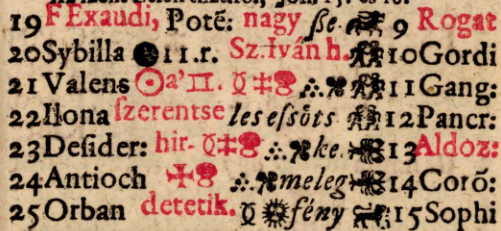 19 F Exaudi, Potē: nagy ſze. 9 Rogat
20 Sybilla 11. r. Sz. Iván h. 10 Gordi
21 Valens ☉ a' ♊. ☿ 11 Gang:
22 Ilona ſzerentse les eſsöts 12 Pancr:
23 Deſider: hir- ☿ ke. 13 Aldoz:
24 Antioch meleg 14 Corō:
25 Orban detetik. ☿ fény 15 Sophi